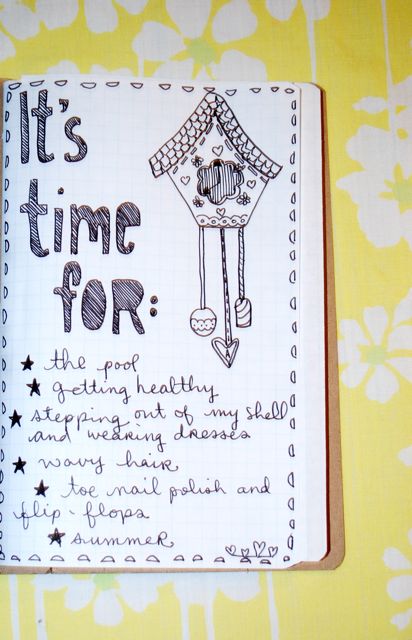 It's
time
for:
★ the pool
★ getting healthy
★ stepping out of my shell
and wearing dresses
★ wavy hair
★ toe nail polish and
flip-flops
★ summer